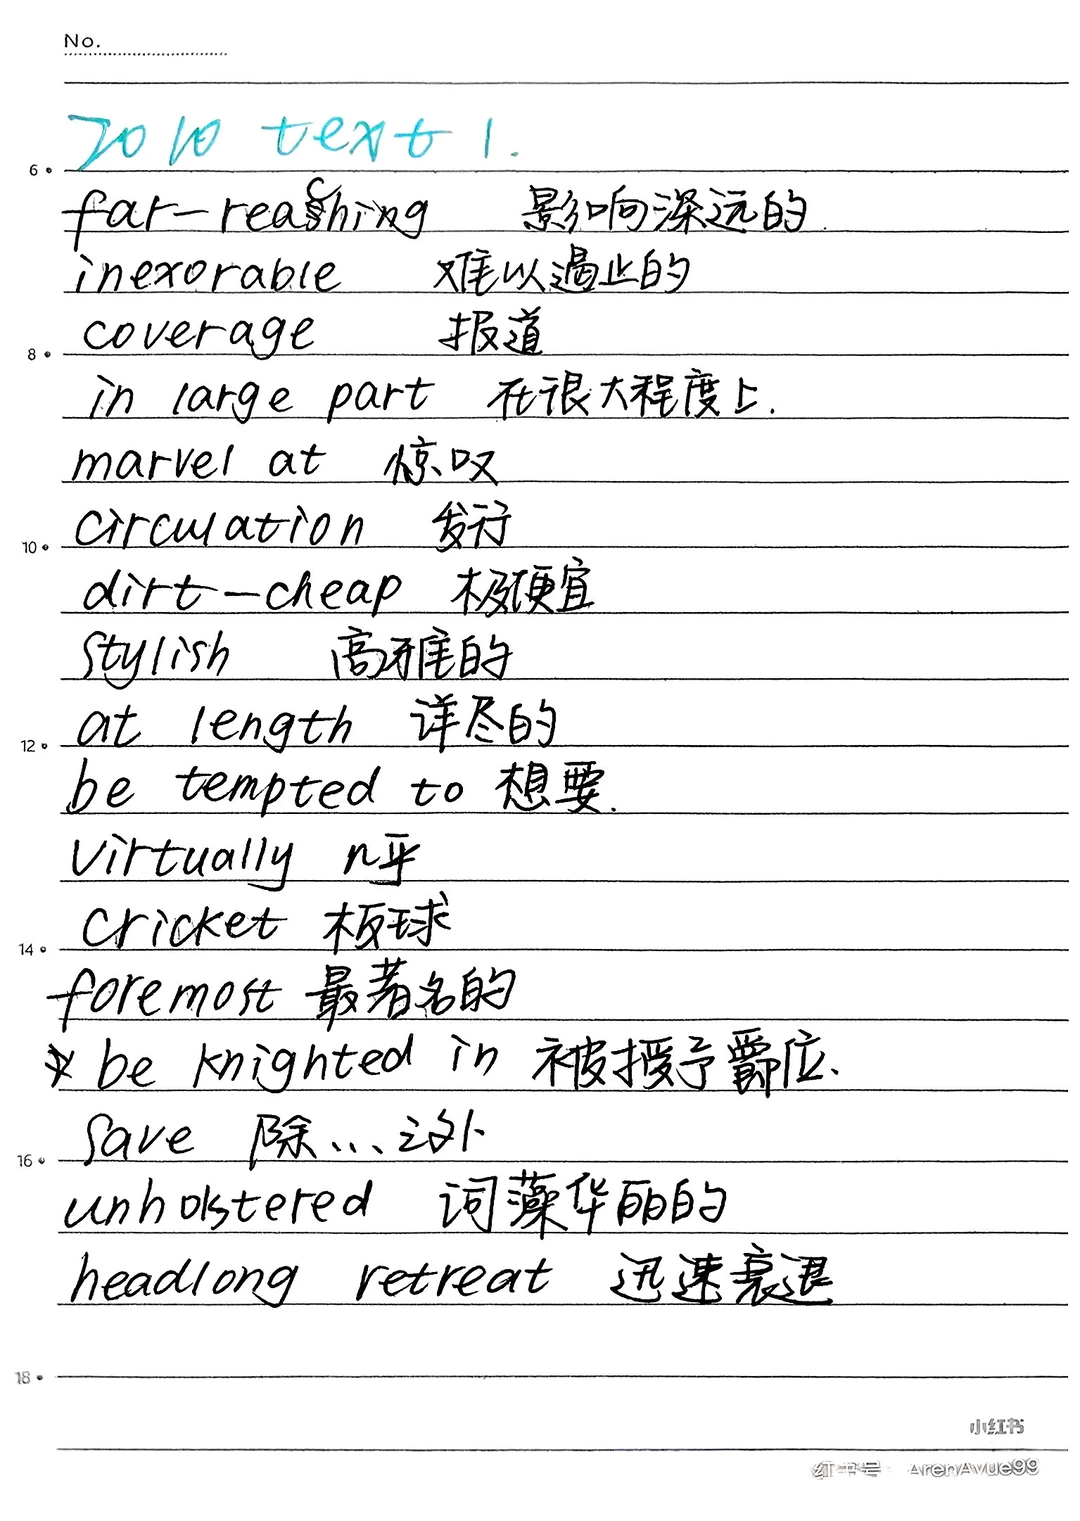 No.
2010 text 1.
6
far-reaching 影响深远的.
inexorable 难以遏止的
8
coverage 报道
in large part 在很大程度上.
marvel at 惊叹
10
circulation 发行
dirt-cheap 极便宜
stylish 高雅的
12
at length 详尽的
be tempted to 想要.
virtually 几乎
14
cricket 板球
foremost 最著名的
* be knighted in 被授予爵位.
16
save 除...之外
unholstered 词藻华丽的
headlong retreat 迅速衰退
18
小红书
红书号 ArenAvue99